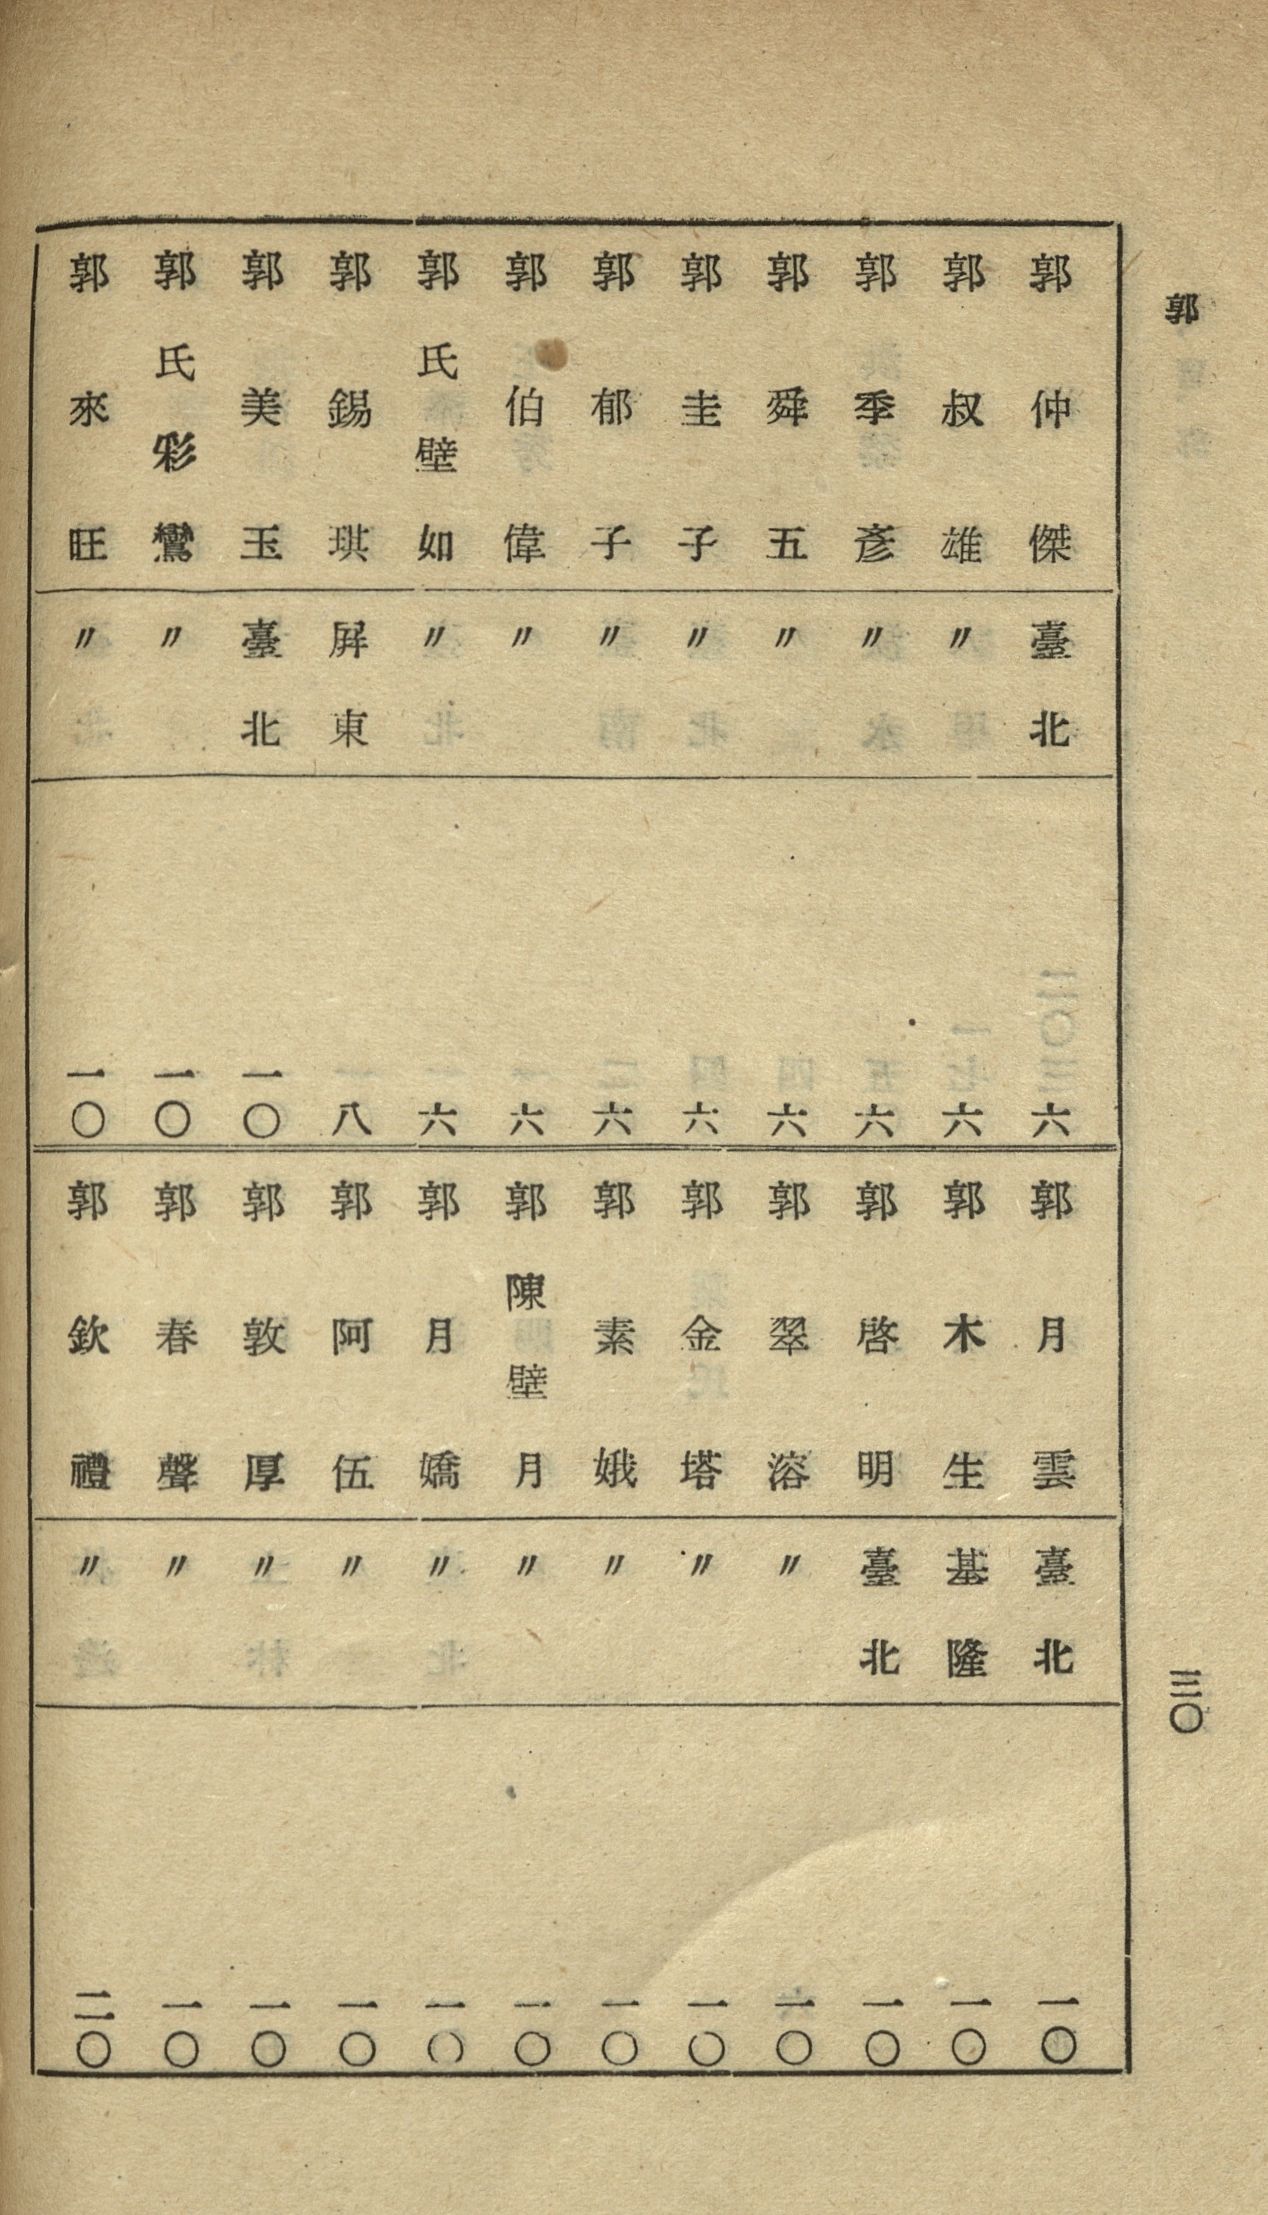 郭
三〇
郭仲傑 臺北 六
郭叔雄 〃 六
郭季彥 〃 六
郭舜五 〃 六
郭圭子 〃 六
郭郁子 〃 六
郭伯偉 〃 六
郭氏壁如 〃 六
郭錫琪 屏東 八
郭美玉 臺北 一〇
郭氏彩鸞 〃 一〇
郭來旺 〃 一〇
郭月雲 臺北 一〇
郭木生 基隆 一〇
郭啓明 臺北 一〇
郭翠溶 〃 一〇
郭金塔 〃 一〇
郭素娥 〃 一〇
郭陳壁月 〃 一〇
郭月嬌 〃 一〇
郭阿伍 〃 一〇
郭敦厚 〃 一〇
郭春聲 〃 一〇
郭欽禮 〃 二〇